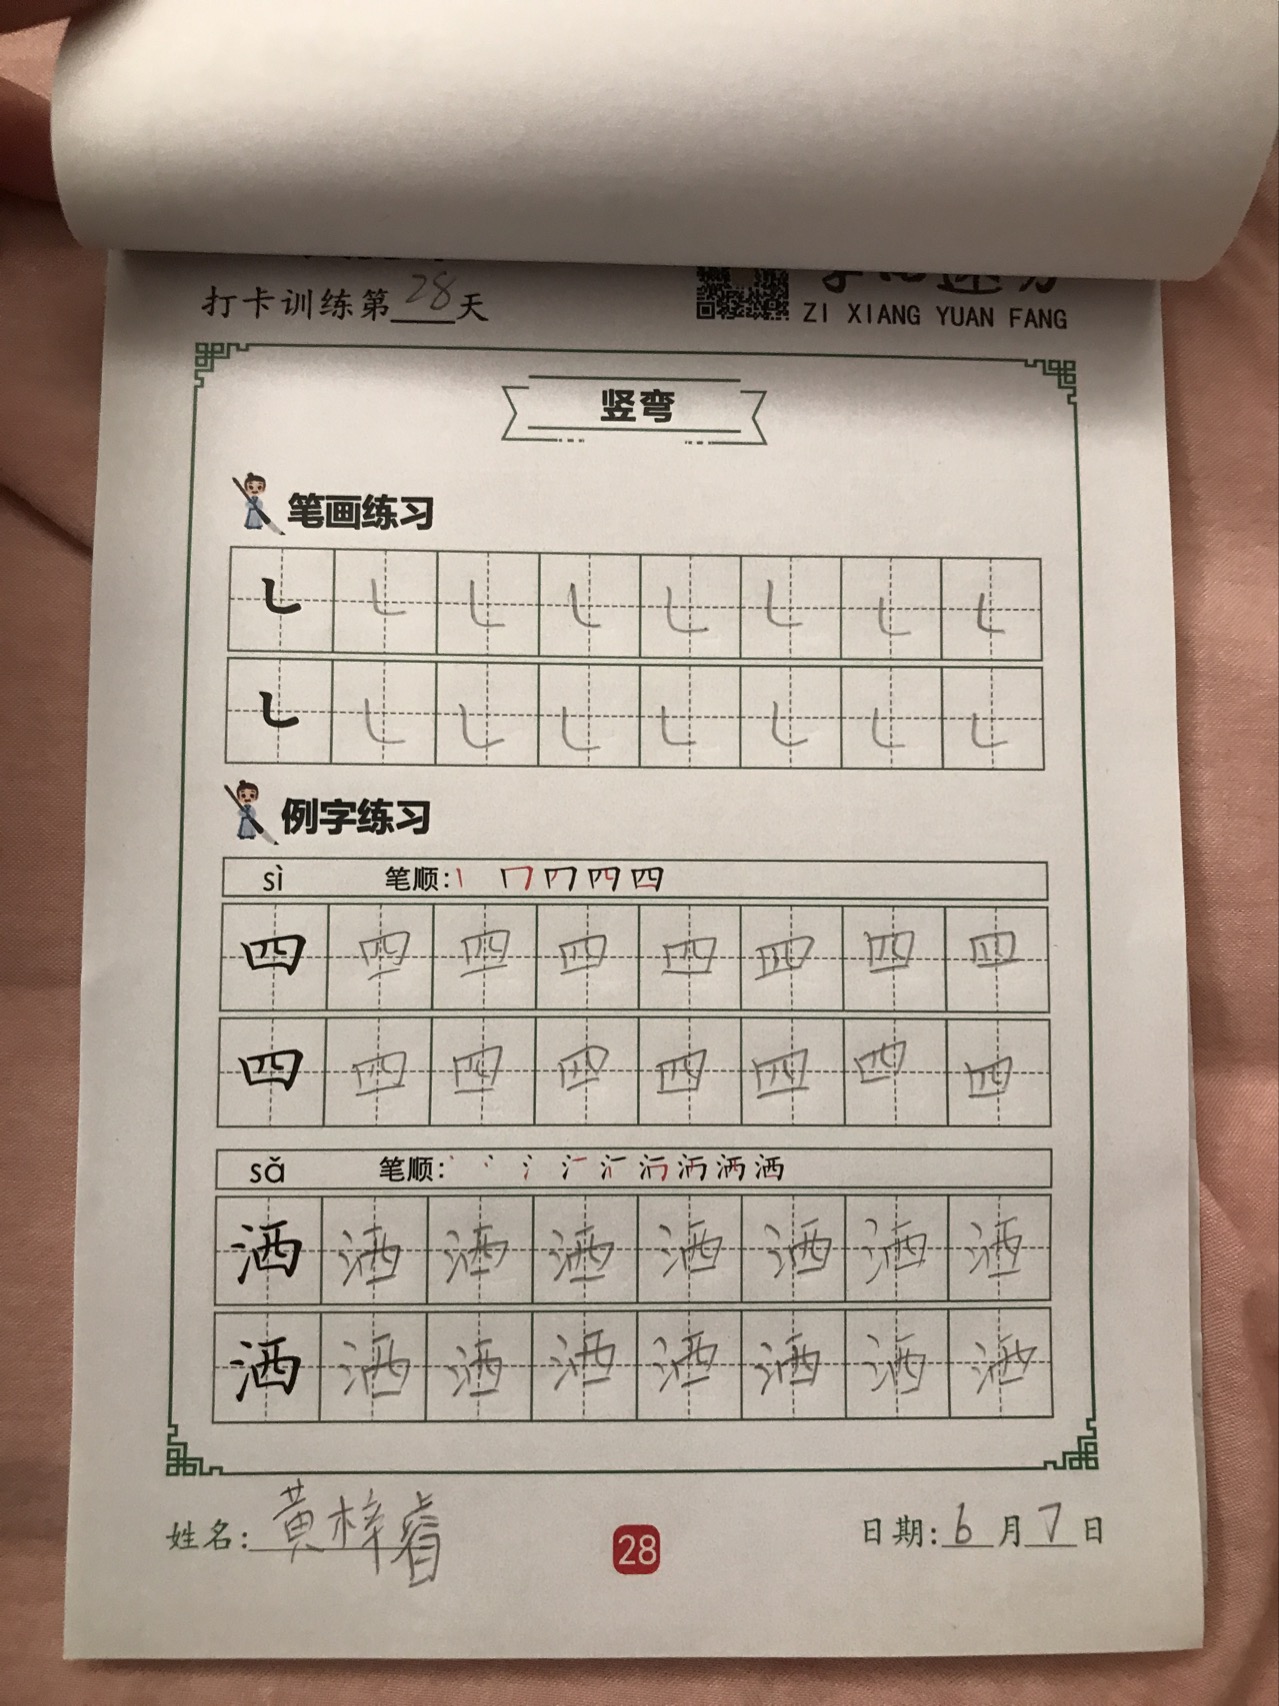 打卡训练第28天
ZI XIANG YUAN FANG
竖弯
笔画练习
㇄ ㇄ ㇄ ㇄ ㇄ ㇄ ㇄ ㇄
㇄ ㇄ ㇄ ㇄ ㇄ ㇄ ㇄ ㇄
例字练习
sì 笔顺:
四 四 四 四 四 四 四 四
四 四 四 四 四 四 四 四
sǎ 笔顺:
洒 洒 洒 洒 洒 洒 洒 洒
洒 洒 洒 洒 洒 洒 洒 洒
姓名:黄梓睿
28
日期:6月7日